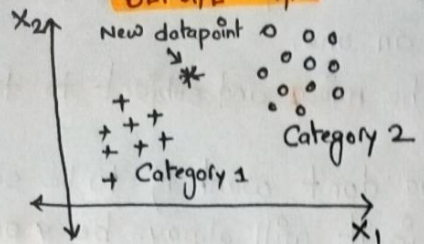 X2
New datapoint
Category 2
Category 1
X1